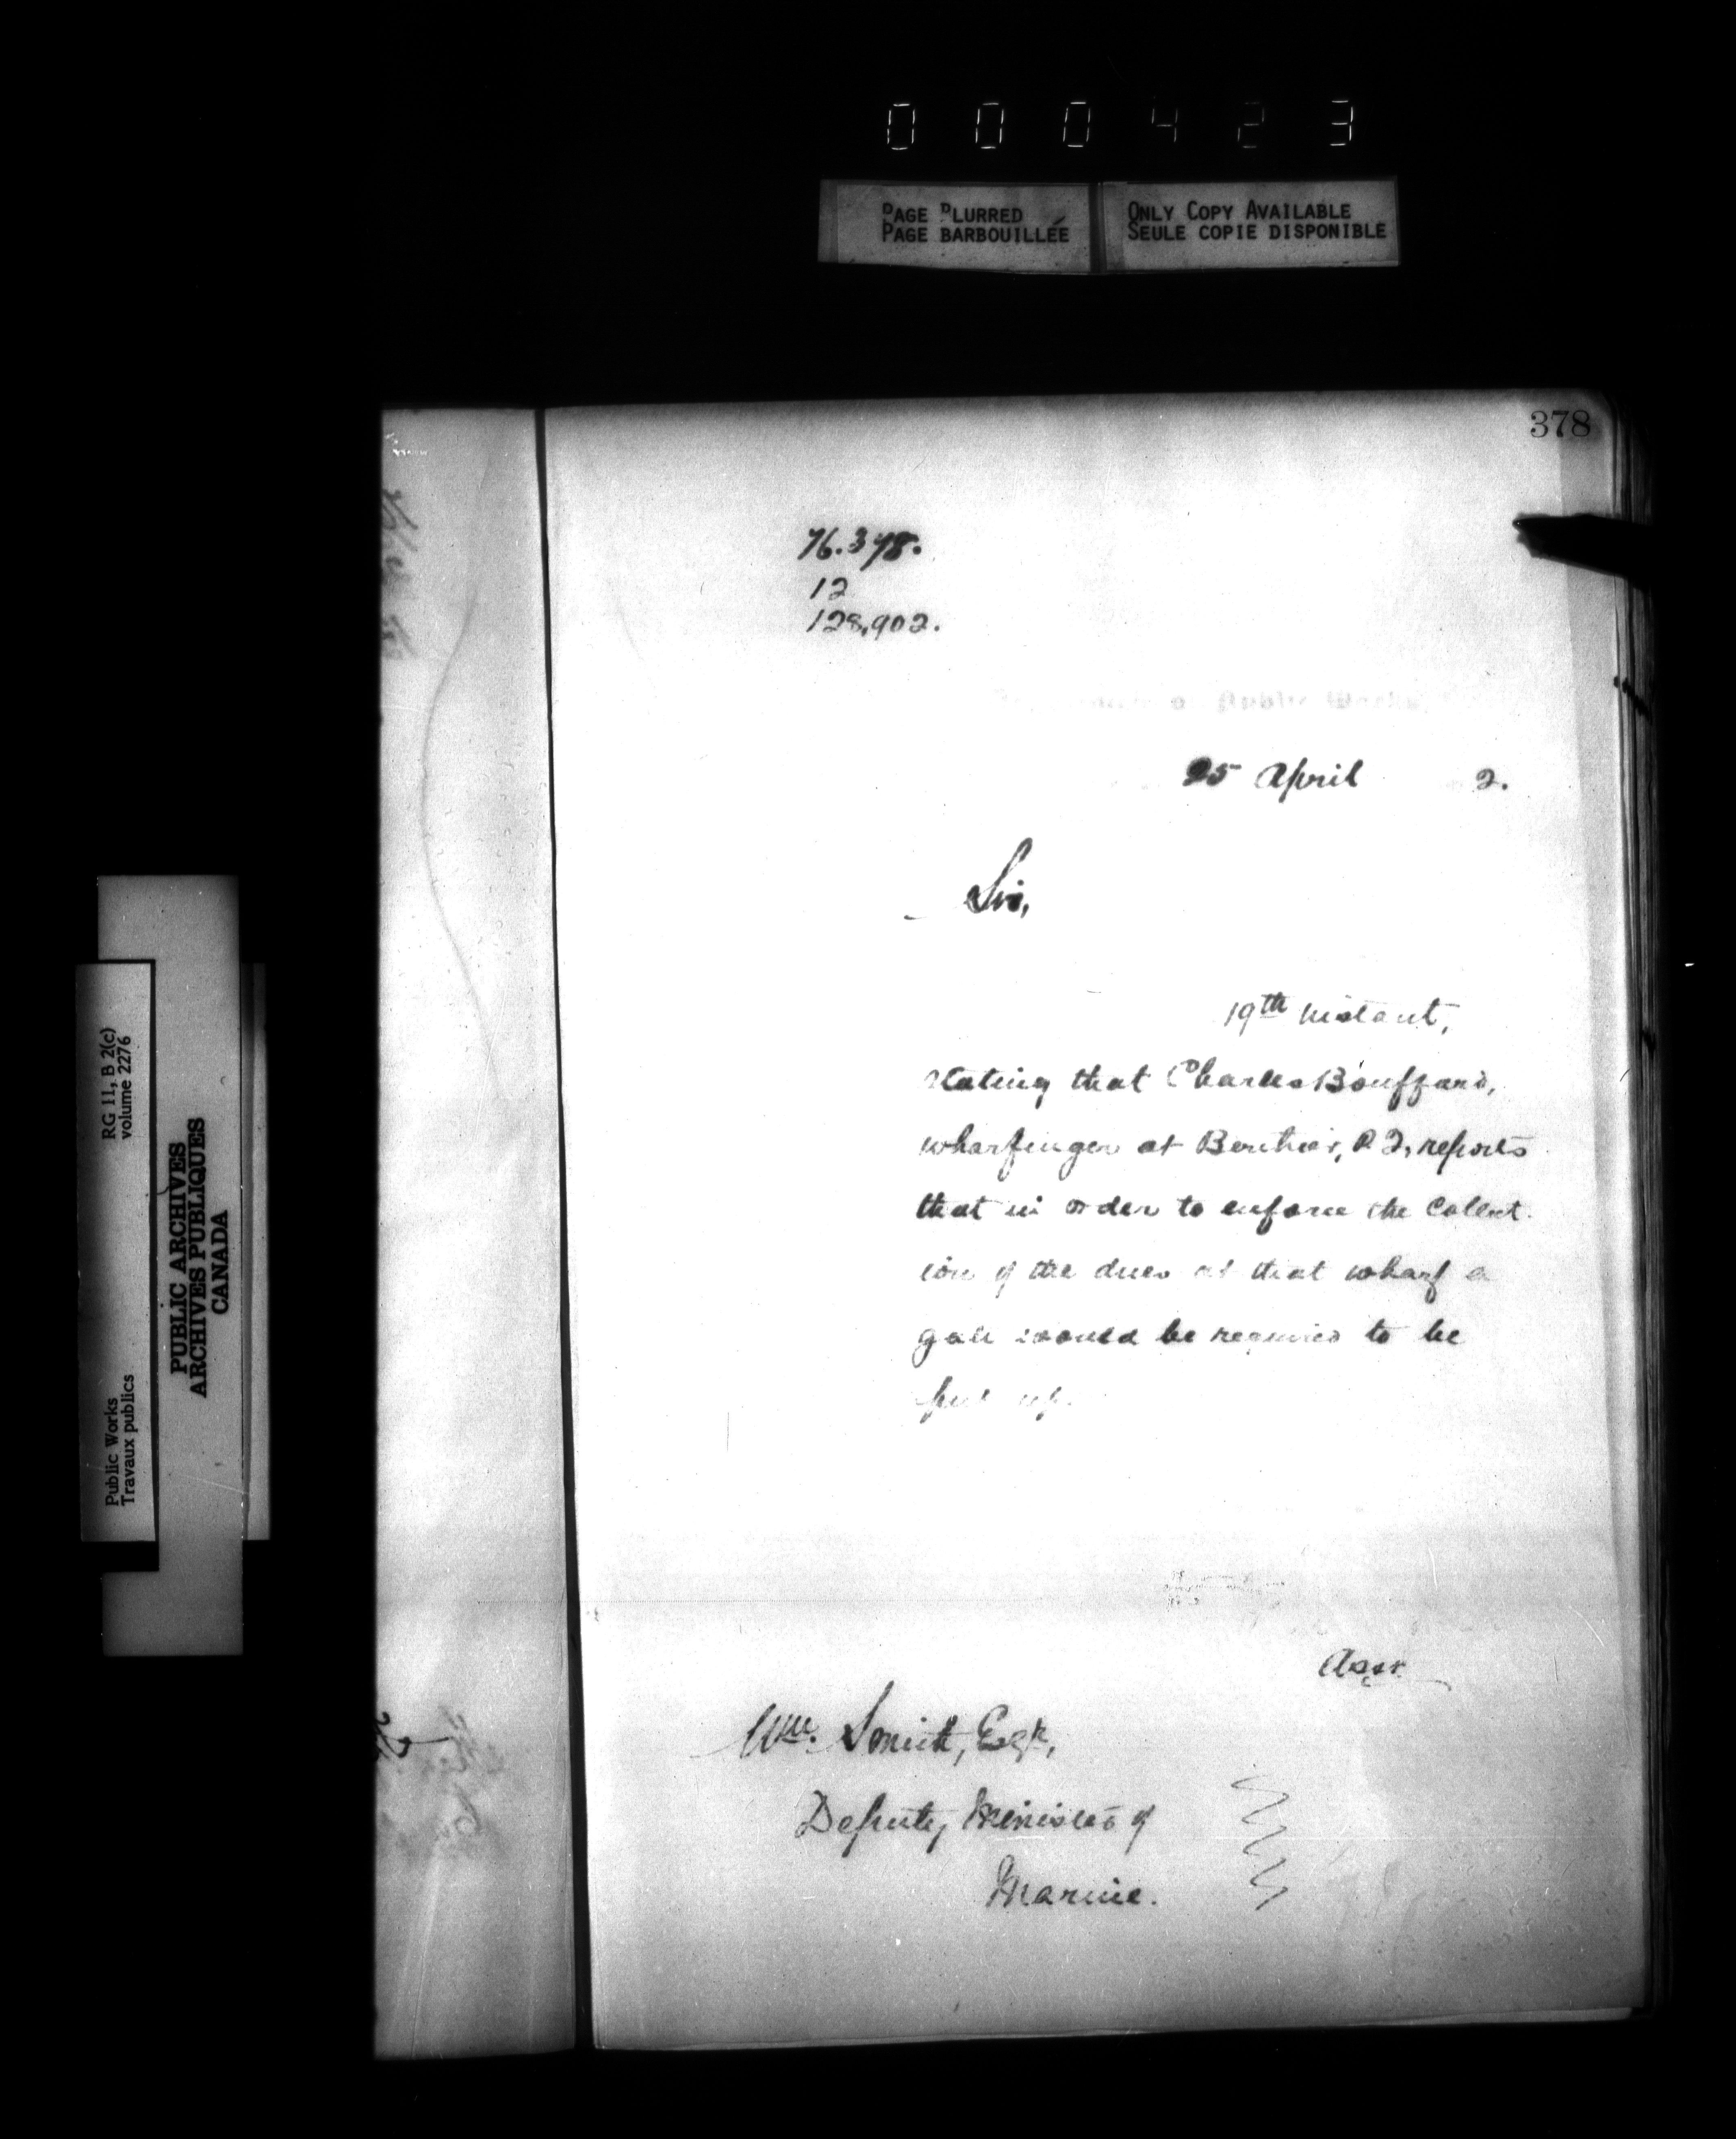 000423
PAGE BLURRED
PAGE BARBOUILLÉE
ONLY COPY AVAILABLE
SEULE COPIE DISPONIBLE
378
76.378.
12
128,902.
Public Works
25 April 2.
Sir,
19th instant,
stating that Charles Bouffard,
wharfinger at Berthier, P.Q, reports
that in order to enforce the Collect-
ion of the dues at that wharf a
gate would be required to be
put up.
Wm. Smith, Esqr,
Deputy Minister of
Marine.
RG 11, B 2(c)
volume 2276
Public Works
Travaux publics
PUBLIC ARCHIVES
ARCHIVES PUBLIQUES
CANADA